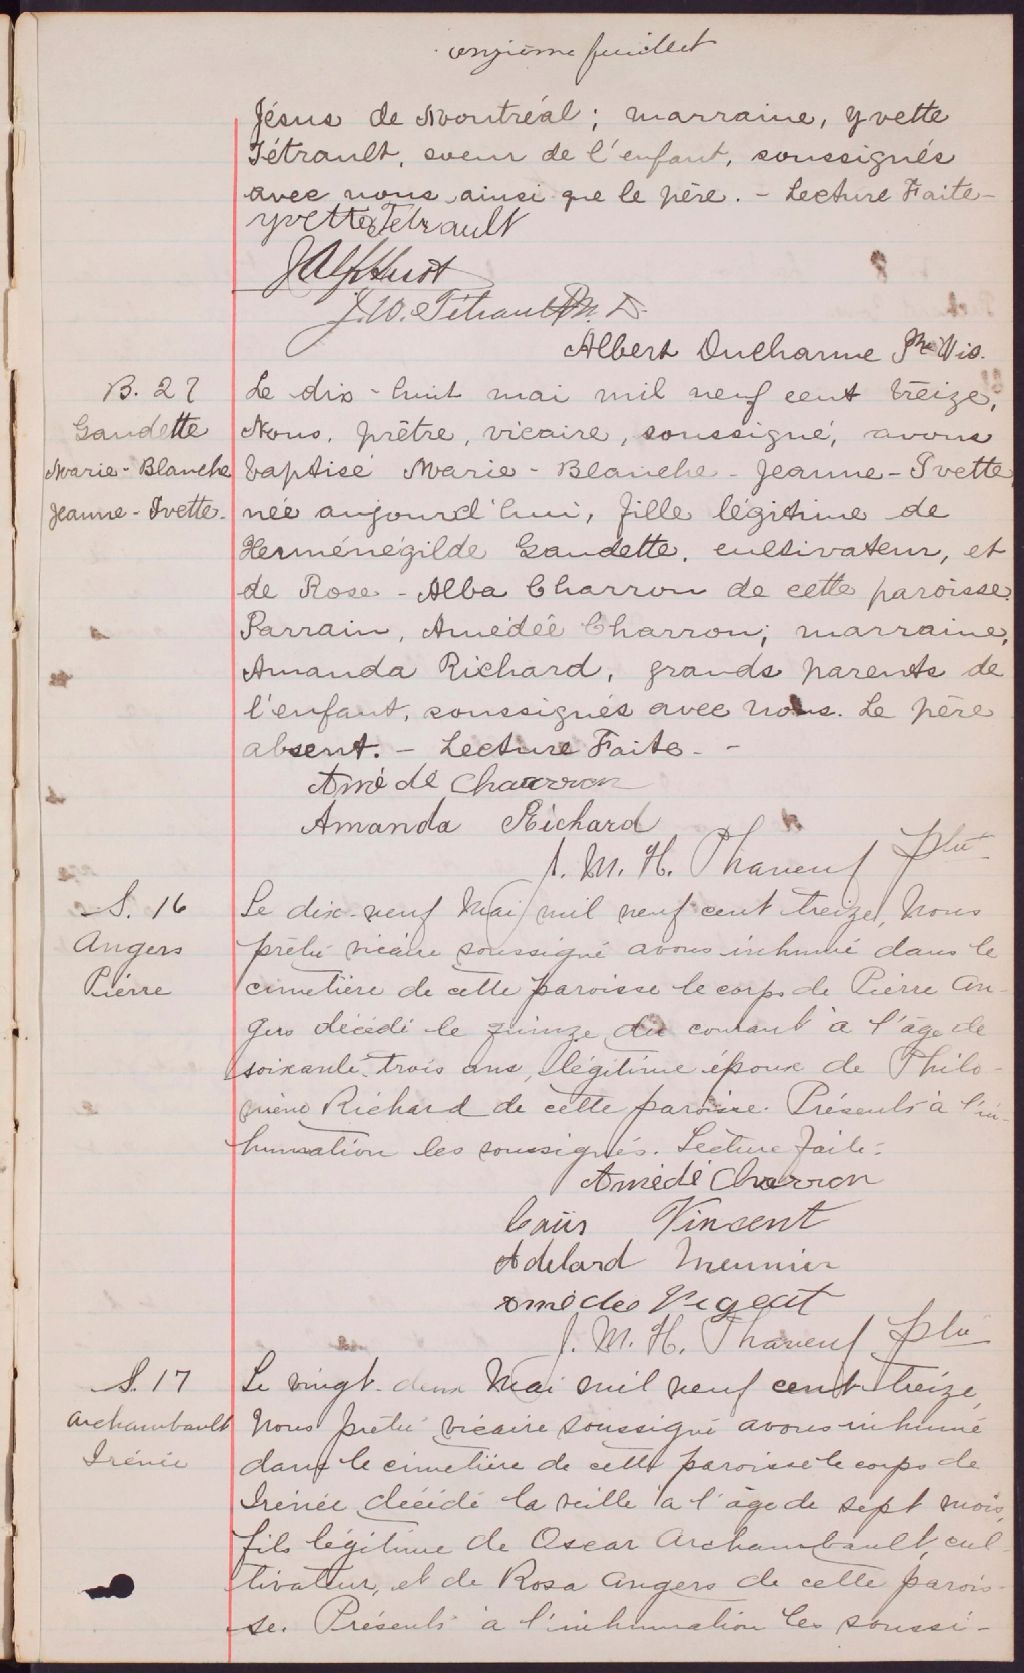 onzième feuillet
Jésus de Montréal ; marraine, Yvette
Tétrault, soeur de l'enfant, soussignés
avec nous ainsi que le père. - Lecture Faite -
Yvette Tetrault
J Alph Huot
J. W. Tétrault M. D.
Albert Ducharme Ptre Vic.
B. 27
Gaudette
Marie - Blanche
Jeanne - Ivette.
Le dix - huit mai mil neuf cent treize,
Nous, prêtre, vicaire, soussigné, avons
baptisé Marie - Blanche - Jeanne - Ivette
née aujourd'hui, fille légitime de
Herménégilde Gaudette, cultivateur, et
de Rose - Alba Charron de cette paroisse.
Parrain, Amédée Charron; marraine,
Amanda Richard, grands parents de
l'enfant, soussignés avec nous. Le père
absent. - Lecture Faite - -
Amédé Charron
Amanda Richard
J. M. H. Phaneuf ptre
S. 16
Angers
Pierre
Le dix-neuf Mai mil neuf cent treize, Nous
prêtre vicaire soussigné avons inhumé dans le
cimetière de cette paroisse le corps de Pierre An-
gers décédé le quinze du courant à l'âge de
soixante-trois ans, légitime époux de Philo-
mène Richard de cette paroisse. Présents à l'in-
humation les soussignés. Lecture faite.
Amédé Charron
Vincent
Adelard Meunier
Amédée Pigeat
J. M. H. Phaneuf ptre
S. 17
Archambault
Irénée
Le vingt-deux Mai mil neuf cent treize,
Nous prêtre vicaire soussigné avons inhumé
dans le cimetière de cette paroisse le corps de
Irénée décédé la veille à l'âge de sept mois,
fils légitime de Oscar Archambault, cul-
tivateur, et de Rosa Angers de cette parois-
se. Présents à l'inhumation les soussi-